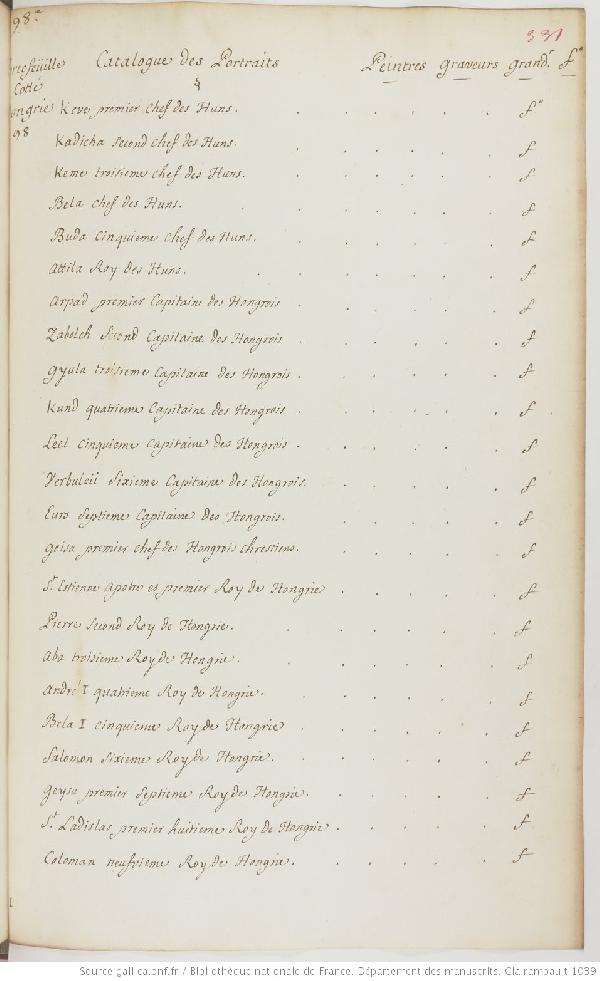 98.
331
Catalogue des Portraits
Peintres graveurs grand.r f.o
Cotte
98
Keve premier chef des Huns. f.o
Kadicha second chef des Huns. f
Keme troisieme chef des Huns. f
Bela chef des Huns. f
Buda Cinquieme chef des Huns. f
Attila Roy des Huns. f
Arpad premier Capitaine des Hongrois f
Zabolch second Capitaine des Hongrois f
Gyula troisieme Capitaine des Hongrois. f
Kund quatrieme Capitaine des Hongrois f
Leel Cinquieme Capitaine des Hongrois f
Verbulcii Sixieme Capitaine des Hongrois. f
Eurs Septieme Capitaine des Hongrois. f
Geisa premier chef des Hongrois Chrestiens. f
St. Estienne Apotre et premier Roy de Hongrie f
Pierre second Roy de Hongrie. f
Aba troisieme Roy de Hongrie. f
André I quatrieme Roy de Hongrie. f
Bela I Cinquieme Roy de Hongrie f
Salomon Sixieme Roy de Hongrie. f
Geysa premier Septieme Roy de Hongrie. f
St. Ladislas premier huitieme Roy de Hongrie. f
Coloman neufvieme Roy de Hongrie. f
Source gallica.bnf.fr / Bibliothèque nationale de France. Département des manuscrits. Clairambault 1039